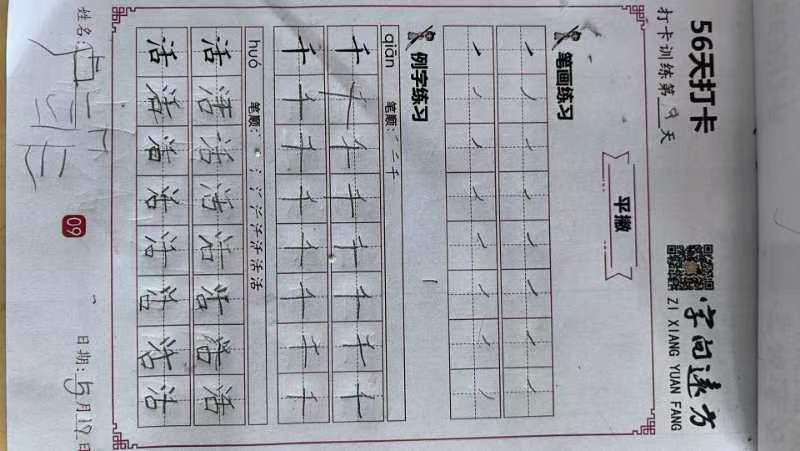 56天打卡
打卡训练第9天
字向远方
ZI XIANG YUAN FANG
平撇
笔画练习
例字练习
qiān 笔顺:一二千
千千千千千千千千
千千千千千千千千
huó 笔顺:
活活活活活活活活
活活活活活活活活
姓名:
09
日期:5月19日